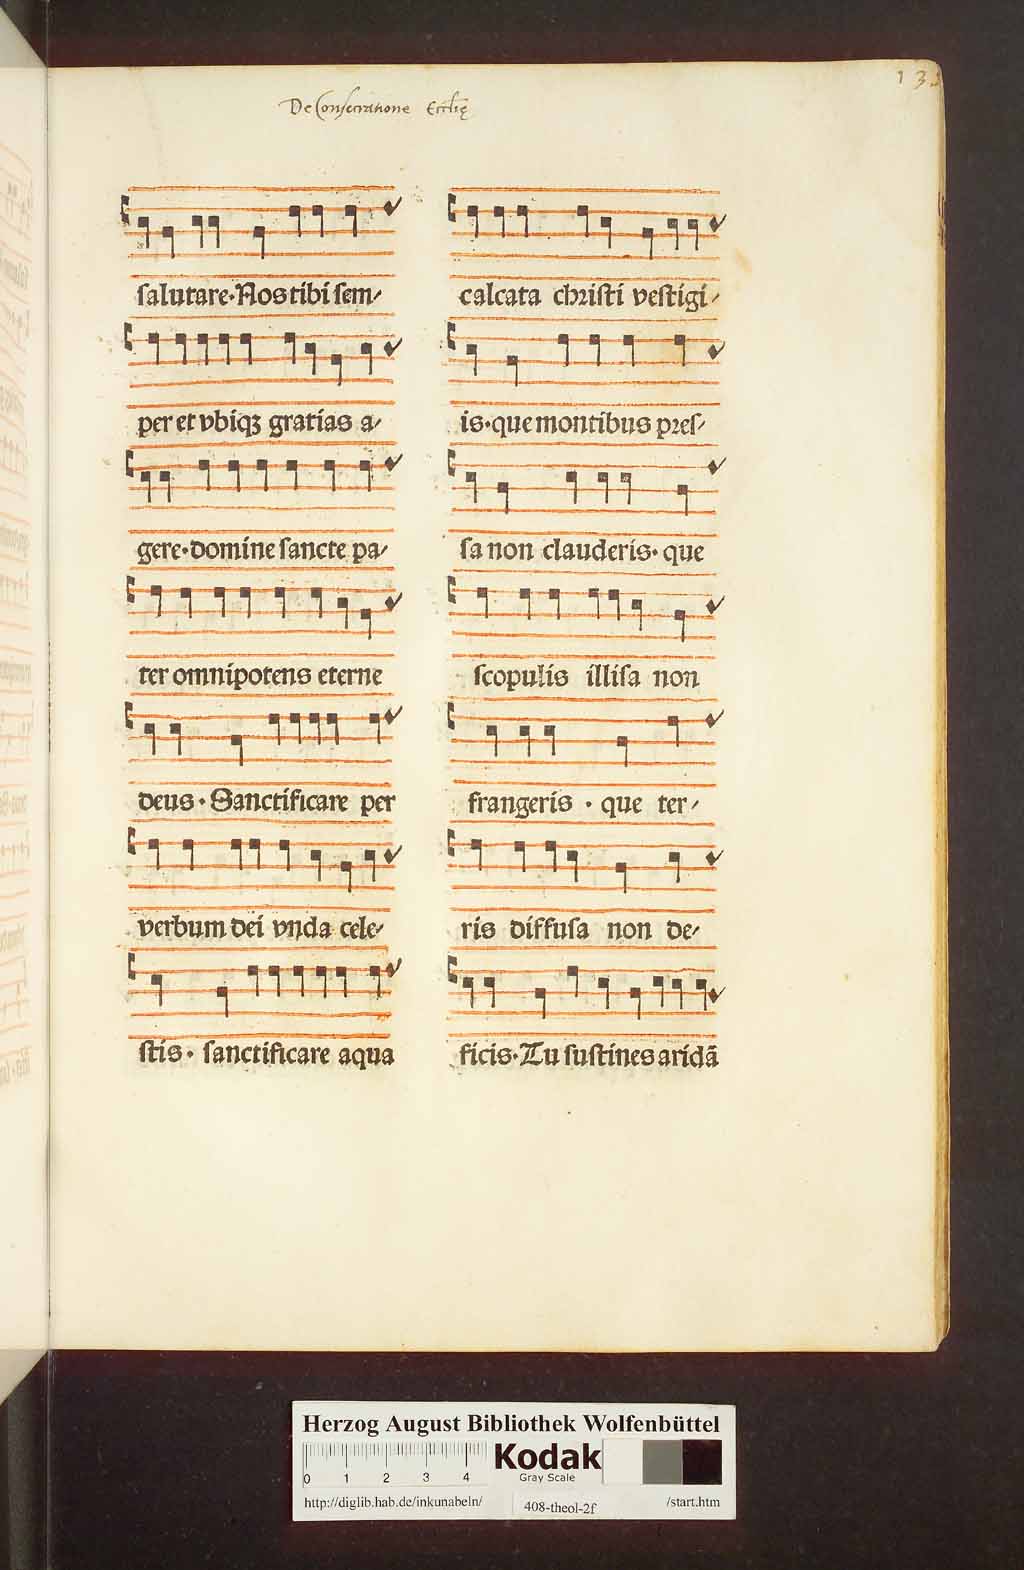 133
De Consecratione Eccl̄ię
salutare·Nos tibi sem⸗
per et vbiqꝫ gratias a⸗
gere·domine sancte pa⸗
ter omnipotens eterne
deus·Sanctificare per
verbum dei vnda cele⸗
stis·sanctificare aqua
calcata christi vestigi⸗
is·que montibus pres⸗
sa non clauderis·que
scopulis illisa non
frangeris·que ter⸗
ris diffusa non de⸗
ficis·Tu sustines aridā
Herzog August Bibliothek Wolfenbüttel
0 1 2 3 4
Kodak
Gray Scale
http://diglib.hab.de/inkunabeln/ 408-theol-2f /start.htm